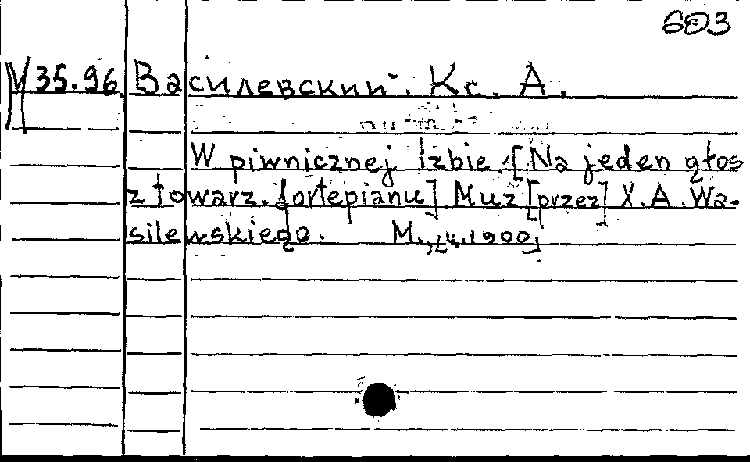 603
М 35.96 Василевский. Кс. А.
W piwnicznej Izbie. [Na jeden głos
z towarz. fortepianu] Muz [przez] X. A. Wa-
silewskiego. M., 1900